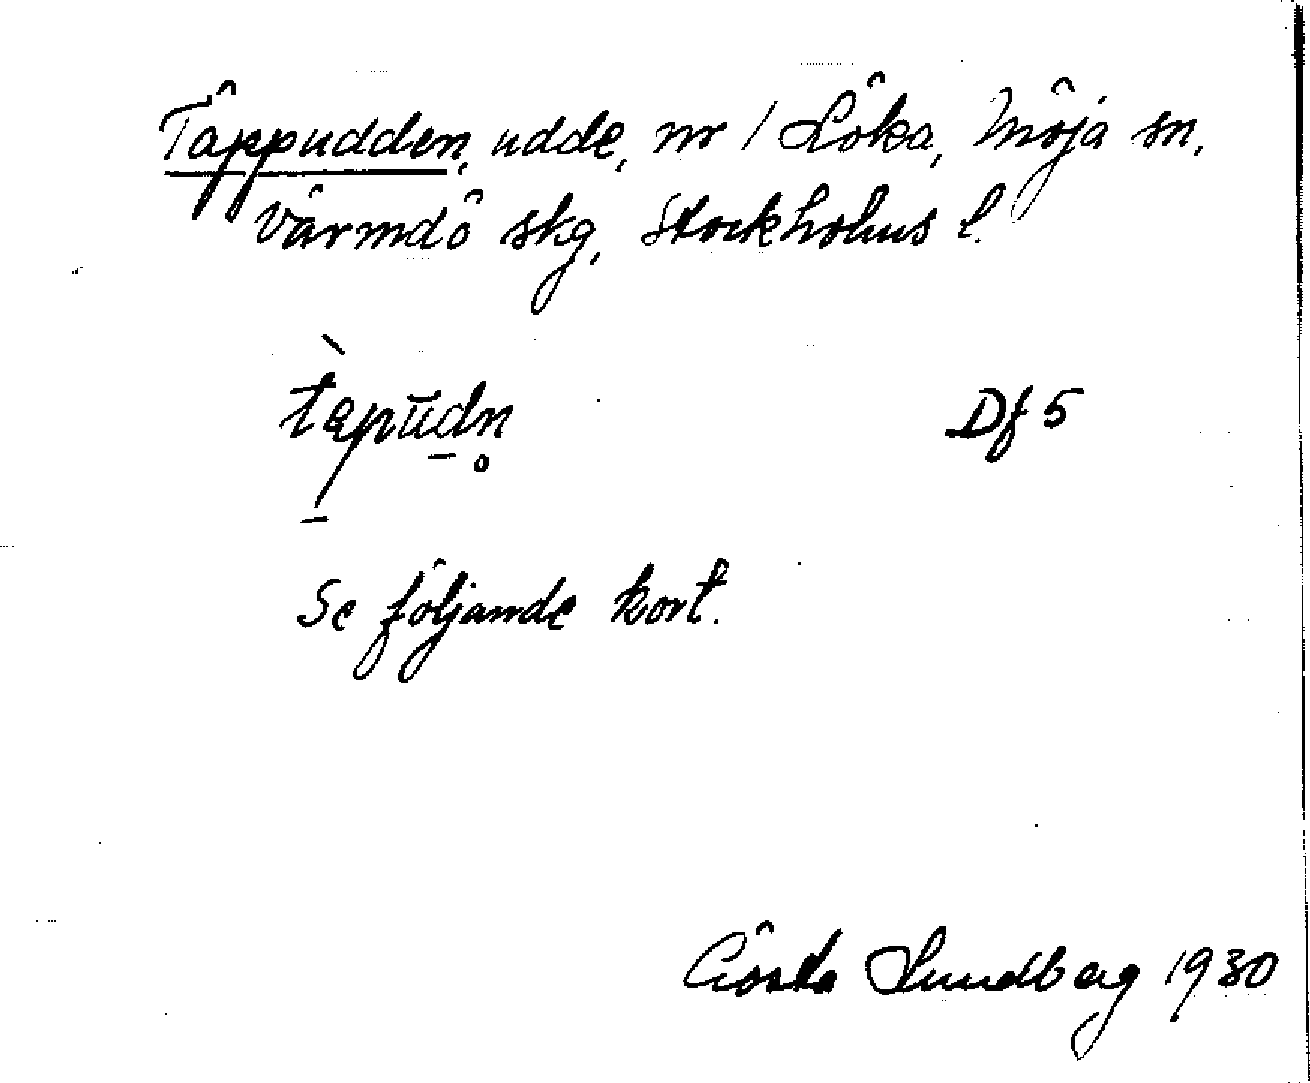 Täppudden, udde, nr 1 Löka, Möja sn,
Värmdö skg, Stockholms l.
tàpūdn̥ Df 5
Se följande kort.
Gösta Lundberg 1930